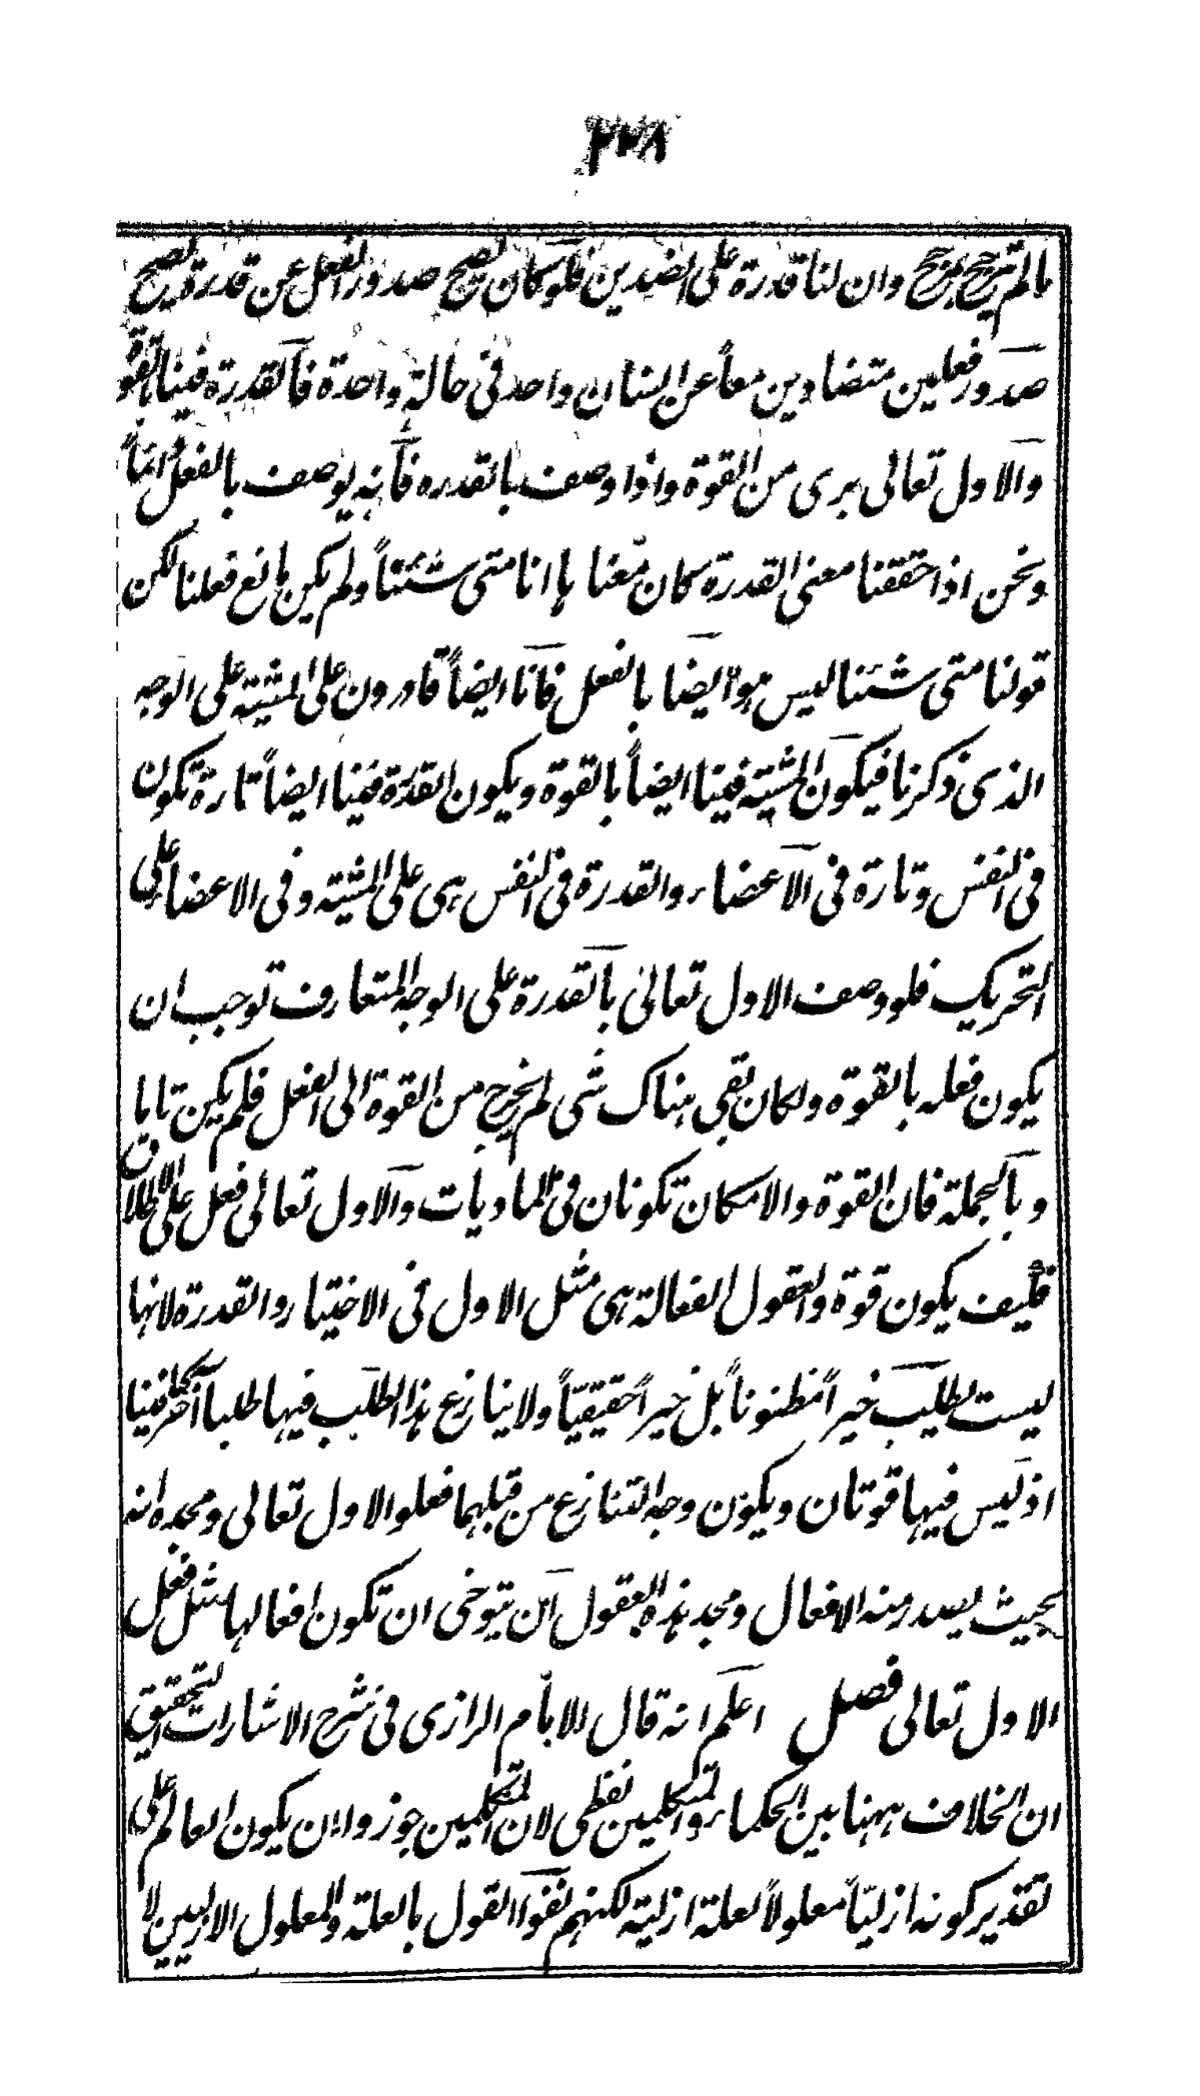 ٢٣٨
مالم يترجح بمرجح وان لنا قدرة على الضدين فلو كان يصح صدور الفعل عن قدرة يصح
صدور فعلين متضادين معاً عن انسان واحد فى حالة واحدة فالقدرة فينا بالقوة
والاول تعالى برى من القوة واذا وصف بالقدره فانه يوصف بالفعل دائماً
ونحن اذا حققنا معنى القدرة كان معناها انا متى شئنا ولم يكن مانع فعلنا لكن
قولنا متى شئنا ليس هو ايضا بالفعل فانا ايضاً قادرون على المشيئة على الوجه
الذى ذكرنا فيكون المشيئة فينا ايضاً بالقوة ويكون القدرة فينا ايضاً تارة تكون
فى النفس وتارة فى الاعضاء والقدرة فى النفس هى على المشيئة وفى الاعضاء على
التحريك فلو وصف الاول تعالى بالقدرة على الوجه المتعارف توجب ان
يكون فعله بالقوة ولكان بقى هناك شى لم يخرج من القوة الى الفعل فلم يكن تاما
وبالجملة فان القوة والامكان تكونان فى الماديات والاول تعالى فعل على الاطلاق
فكيف يكون قوة والعقول الفعالة هى مثل الاول فى الاختيار والقدرة لانها
ليست تطلب خيراً مظنوناً بل خيراً حقيقيّاً ولا ينازع هذا الطلب فيها طلبا آخر كما فينا
اذ ليس فيها قوتان ويكون وجه التنازع من قبلهما فعلو الاول تعالى ومجده انه
بحيث يصدر منه الافعال ومجد هذه العقول ان يتوخى ان تكون افعالها مثل فعل
الاول تعالى فصل اعلم انه قال الامام الرازى فى شرح الاشارات التحقيق
ان الخلاف ههنا بين الحكماء والمتكلمين لفظى لان المتكلمين جوزوا ان يكون العالم على
تقدير كونه ازليّاً معلولاً لعلة ازلية لكنهم نفوا القول بالعلة والمعلول الازليين لا